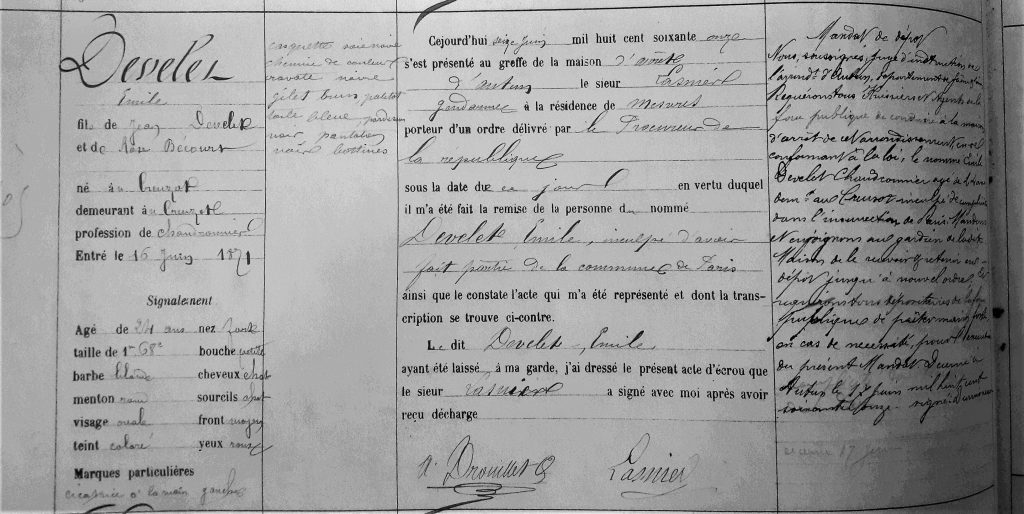 Develet
Emile
fils de Jean Develet
et de Anne Becourt
né au Creuzot
demeurant au Creuzot
profession de chaudronnier
Entré le 16 Juin 1871
Signalement
Agé de 24 ans nez
taille de 1m 68c bouche petite
barbe blonde cheveux chat
menton rond sourcils chat
visage ovale front moyen
teint coloré yeux roux
Marques particulières
cicatrice à la main gauche
casquette soie noire
chemise de couleur
cravate noire
gilet brun paletot
toile bleue, pardessus
noir pantalon
noir bottines
Cejourd'hui seize Juin mil huit cent soixante onze
s'est présenté au greffe de la maison d'arrêt
d'Autun le sieur Lasnier
gendarme à la résidence de Mesvres
porteur d'un ordre délivré par le Procureur de
la republique
sous la date du ce jour en vertu duquel
il m'a été fait la remise de la personne du nommé
Develet Emile, inculpé d'avoir
fait partie de la commune de Paris
ainsi que le constate l'acte qui m'a été représenté et dont la trans-
cription se trouve ci-contre.
Le dit Develet Emile
ayant été laissé à ma garde, j'ai dressé le présent acte d'écrou que
le sieur Lasnier a signé avec moi après avoir
reçu décharge
Drouillet
Lasnier
Mandat de dépot
Nous, soussigné, juge d'instruction de
l'arrondt d'Autun, département de
Requérons tous Huissiers et Agents de la
force publique de conduire à la maison
d'arrêt de cet arrondissement, en se
conformant à la loi, le nommé Emile
Develet Chaudronnier agé de 24 ans
demt au Creusot inculpé de complicité
dans l'insurrection de Paris. Mandons
et enjoignons au gardien de ladite
Maison de le recevoir et retenir en
dépôt jusqu'à nouvel ordre, Et
requérons tous dépositaires de la force
publique de prêter main forte
en cas de nécessité, pour l'exécution
du présent Mandat Donné à
Autun le 17 Juin mil huit cent
soixante onze signé
17 Juin